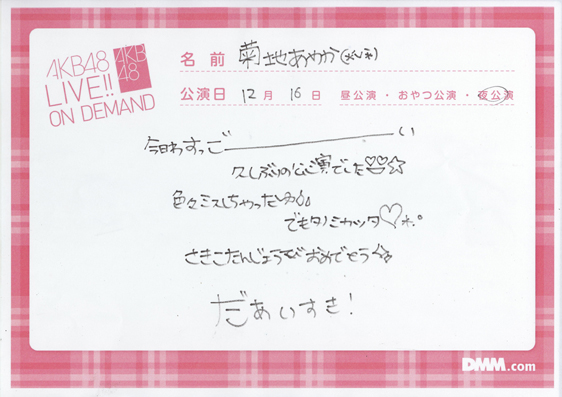 AKB48
LIVE!!
ON DEMAND
AKB
48
名前 菊地あやか
公演日 12月 16日 昼公演・おやつ公演・夜公演
今日わすっごーーーーーい
久しぶりの公演でした♡♡☆
色々ミスしちゃった
でもタノミカッタ♡
さきこたんじょうびおめでとう☆
だぁいすき!
DMM.com